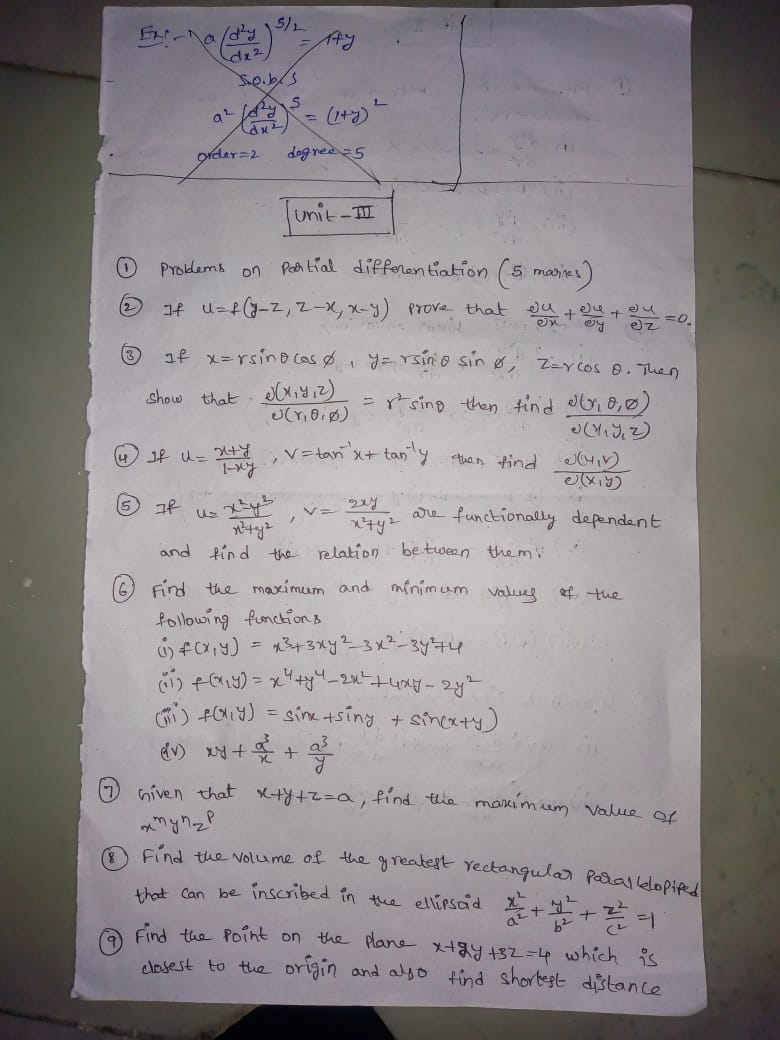 Ex:- a (d²y/dx²)^5/2 = 1+y
S.o.b.s
a² (d²y/dx²)^5 = (1+y)²
order=2 degree=5
Unit-III
① Problems on Partial differentiation (5 marks)
② If u=f(y-z, z-x, x-y) prove that ∂u/∂x + ∂u/∂y + ∂u/∂z =0.
③ If x=rsinθcosø, y=rsinθ sinø, z=rcosθ. Then
show that ∂(x,y,z)/∂(r,θ,ø) = r²sinθ then find ∂(r,θ,ø)/∂(x,y,z)
④ If u= x+y/1-xy , v=tan⁻¹x+tan⁻¹y then find ∂(u,v)/∂(x,y)
⑤ If u= x²y²/x²+y² , v= 2xy/x²+y² are functionally dependent
and find the relation between them.
⑥ Find the maximum and minimum values of the
following functions
(i) f(x,y) = x³+3xy²-3x²-3y²+4
(ii) f(x,y) = x⁴+y⁴-2x²+4xy-2y²
(iii) f(x,y) = sinx+siny + sin(x+y)
(iv) xy + a³/x + a³/y
⑦ Given that x+y+z=a, find the maximum value of
x^m y^n z^p
⑧ Find the volume of the greatest rectangular parallelopiped
that can be inscribed in the ellipsoid x²/a² + y²/b² + z²/c² =1
⑨ Find the point on the plane x+2y+3z=4 which is
closest to the origin and also find shortest distance